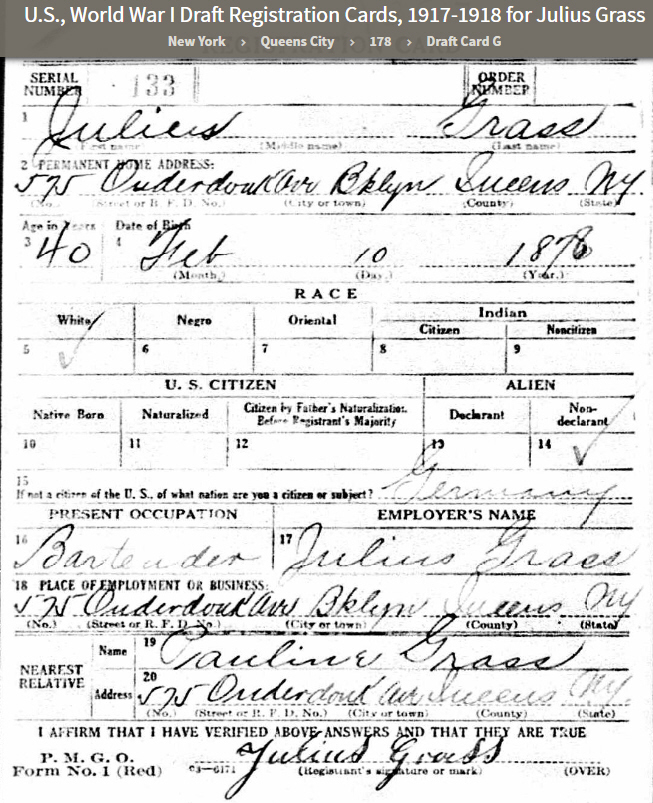 U.S., World War I Draft Registration Cards, 1917-1918 for Julius Grass
New York > Queens City > 178 > Draft Card G
REGISTRATION CARD
SERIAL NUMBER 133 ORDER NUMBER
1 Julius Grass
(First name) (Middle name) (Last name)
2 PERMANENT HOME ADDRESS:
575 Onderdonk Av Bklyn Queens NY
(No.) (Street or R. F. D. No.) (City or town) (County) (State)
Age in Years Date of Birth
3 40 4 Feb 10 1878
(Month.) (Day.) (Year.)
RACE
White Negro Oriental Indian
Citizen Noncitizen
5 ✓ 6 7 8 9
U. S. CITIZEN ALIEN
Native Born Naturalized Citizen by Father's Naturalization Before Registrant's Majority Declarant Non-declarant
10 11 12 13 14 ✓
15
If not a citizen of the U. S., of what nation are you a citizen or subject? Germany
PRESENT OCCUPATION EMPLOYER'S NAME
16 Bartender 17 Julius Grass
18 PLACE OF EMPLOYMENT OR BUSINESS:
575 Onderdonk Av Bklyn Queens NY
(No.) (Street or R. F. D. No.) (City or town) (County) (State)
NEAREST RELATIVE
Name 19 Pauline Grass
Address 20 575 Onderdonk Av Queens NY
(No.) (Street or R. F. D. No.) (City or town) (County) (State)
I AFFIRM THAT I HAVE VERIFIED ABOVE ANSWERS AND THAT THEY ARE TRUE
P. M. G. O.
Form No. 1 (Red) 03—6171 Julius Grass
(Registrant's signature or mark) (OVER)